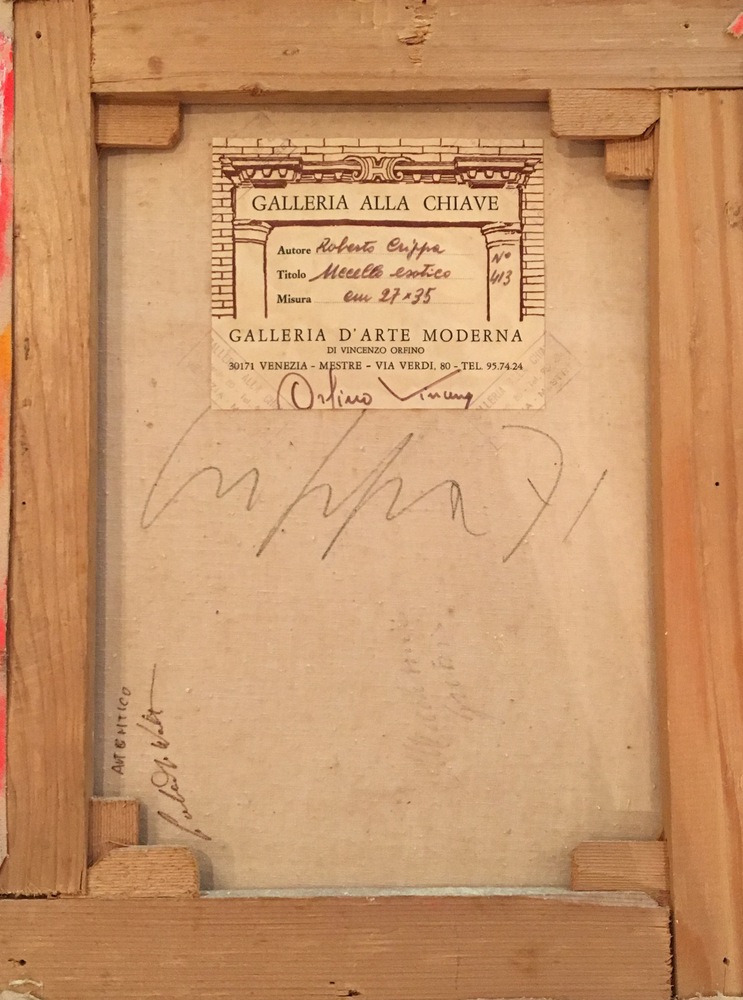 GALLERIA ALLA CHIAVE
Autore Roberto Crippa
Titolo Uccello esotico
Misura cm 27×35
Nº
413
GALLERIA D'ARTE MODERNA
DI VINCENZO ORFINO
30171 VENEZIA - MESTRE - VIA VERDI, 80 - TEL. 95.74.24
Orfino Vincenzo
Crippa 71
AUTENTICO